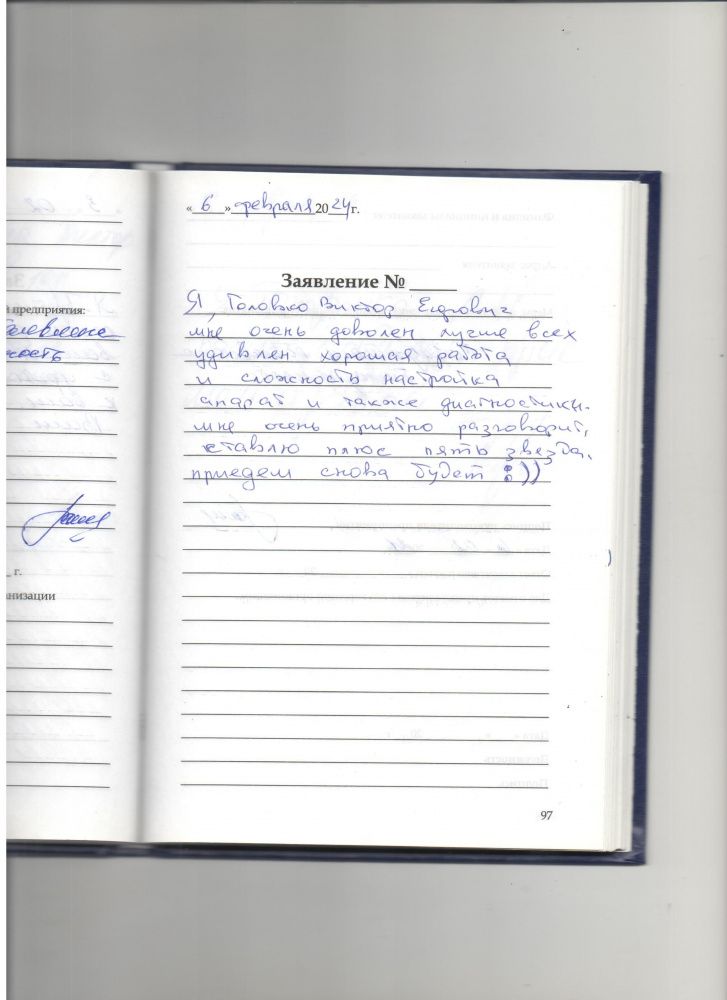 й предприятия:
ность
г.
анизации
« 6 » февраля 2024 г.
Заявление №
Я, Головко Виктор
мне очень доволен лучше всех
удивлен хорошая работа
и сложность настройка
апарат и также диагностики.
мне очень приятно разговорит,
ставлю плюс пять звезда.
приедем снова будет :))
97